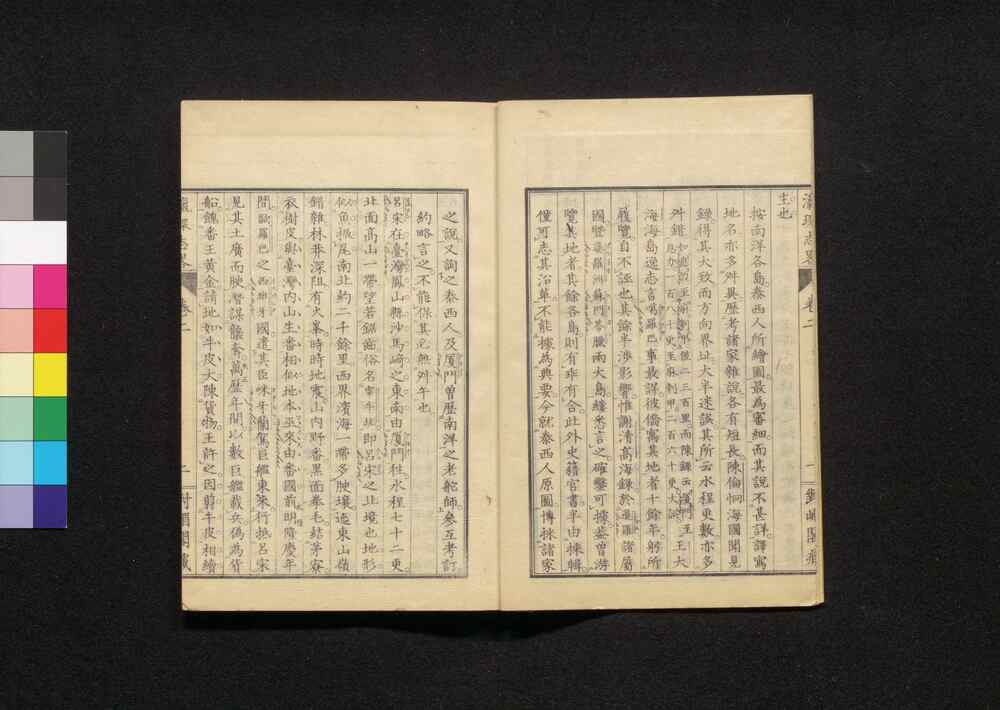 瀛環志略 卷二
生也
按南洋各島泰西人所繪圖最為審細而其說不甚詳譯寫
地名亦多舛異歷考諸家雜說各有短長陳倫炯海國聞見
錄得其大致而方向界址大半迷誤其所云水程更數亦多
舛錯
海海島逸志言噶羅巴事最詳彼僑寓其地者十餘年躬所
履覽自不誣也其餘半涉影響惟謝清高海錄於暹羅諸屬
國暨婆羅洲蘇門答臘兩大島縷悉言之確鑿可據蓋曾游
覽其地者其餘各島則有乖有合此外史籍官書半由採輯
僅可志其沿革不能據為典要今就泰西人原圖博採諸家
之說又詢之泰西人及厦門曾歷南洋之老舵師參互考訂
約略言之不能保其必無舛午也
呂宋在臺灣鳳山縣沙馬崎之東南由厦門往水程七十二更
北面高山一帶望若鋸齒俗名宰牛坑即呂宋之北境也地形
似魚振尾南北約二千餘里西界濱海一帶多腴壤迤東山嶺
錯雜林莽深阻有火峯時時地震山內野番黑面拳毛結茅寮
衣樹皮與臺灣內山生番相似地本巫來由番國前明隆慶年
間歐羅巴之西班牙國遣其臣咪牙蘭駕巨艦東來行抵呂宋
見其土廣而腴潛謀襲奪萬歷年間以數巨艦載兵偽為貨
船饋番王黃金請地如牛皮大陳貨物王許之因剪牛皮相續
卷二
二